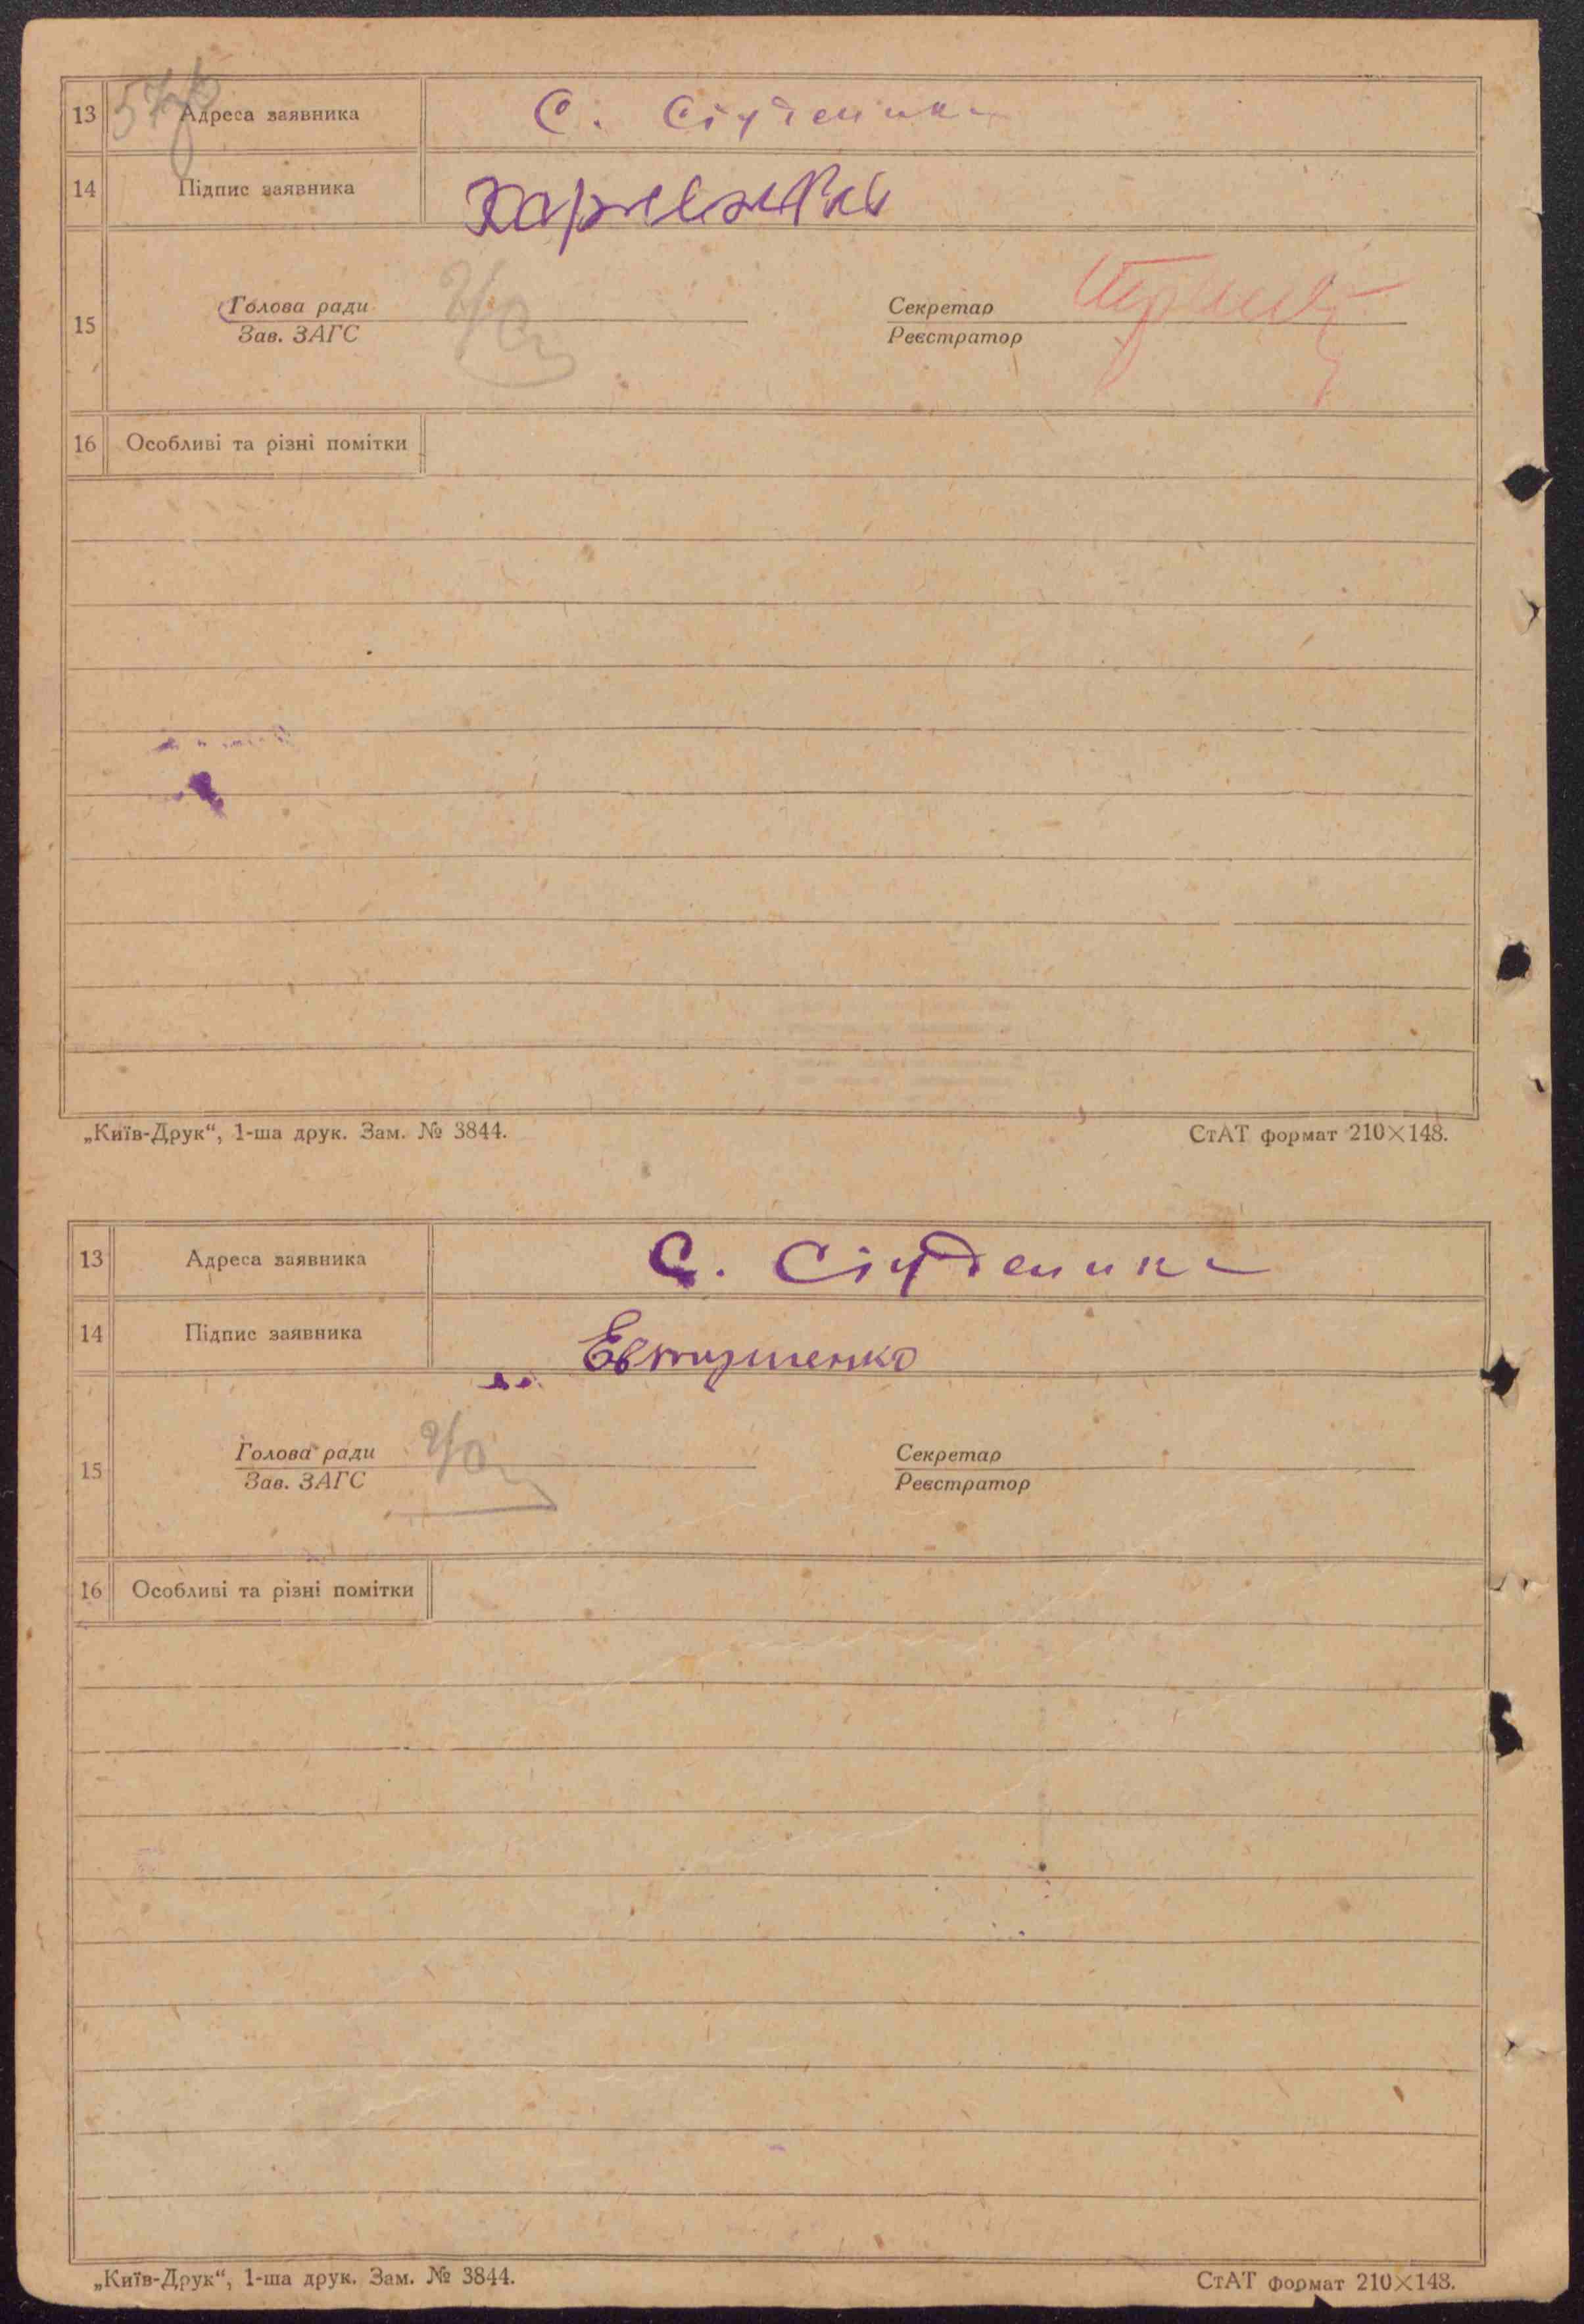 13 Адреса заявника С. Студеника
14 Підпис заявника
15 Голова ради Секретар
Зав. ЗАГС Реєстратор
16 Особливі та різні помітки
„Київ-Друк“, 1-ша друк. Зам. № 3844. СтАТ формат 210×148.
13 Адреса заявника С. Студеника
14 Підпис заявника Евтушенко
15 Голова ради Секретар
Зав. ЗАГС Реєстратор
16 Особливі та різні помітки
„Київ-Друк“, 1-ша друк. Зам. № 3844. СтАТ формат 210×148.